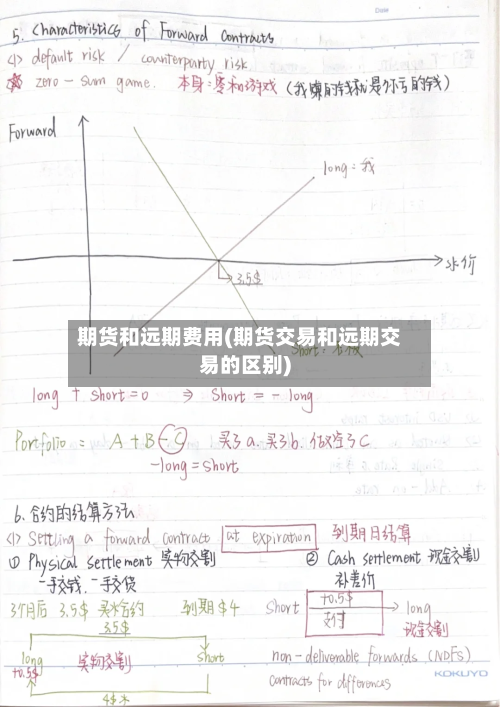 Date
5. Characteristics of Forward Contracts
<1> default risk / counterparty risk
zero-sum game. 本身：零和游戏 (我赚的钱就是你亏的钱)
Forward
long：我
冰价
3.5$
期货和远期费用(期货交易和远期交易的区别)
long + short = 0 ⇒ Short = - long
Portfolio = A + B - C 买了a.买了b.做空了C
-long = short
6. 合约的结算方法
<1> Settling a forward contract at expiration 到期日结算
① Physical settlement 实物交割 ② Cash settlement 现金交割
一手交钱，一手交货 补差价
3个月后 3.5$ 买冰合约 到期$4
3.5$
short +0.5$ 支付 → long
现金交割
long 实物交割 short
+0.5$
4$ 冰
non-deliverable forwards (NDFs)
contracts for differences
KOKUYO